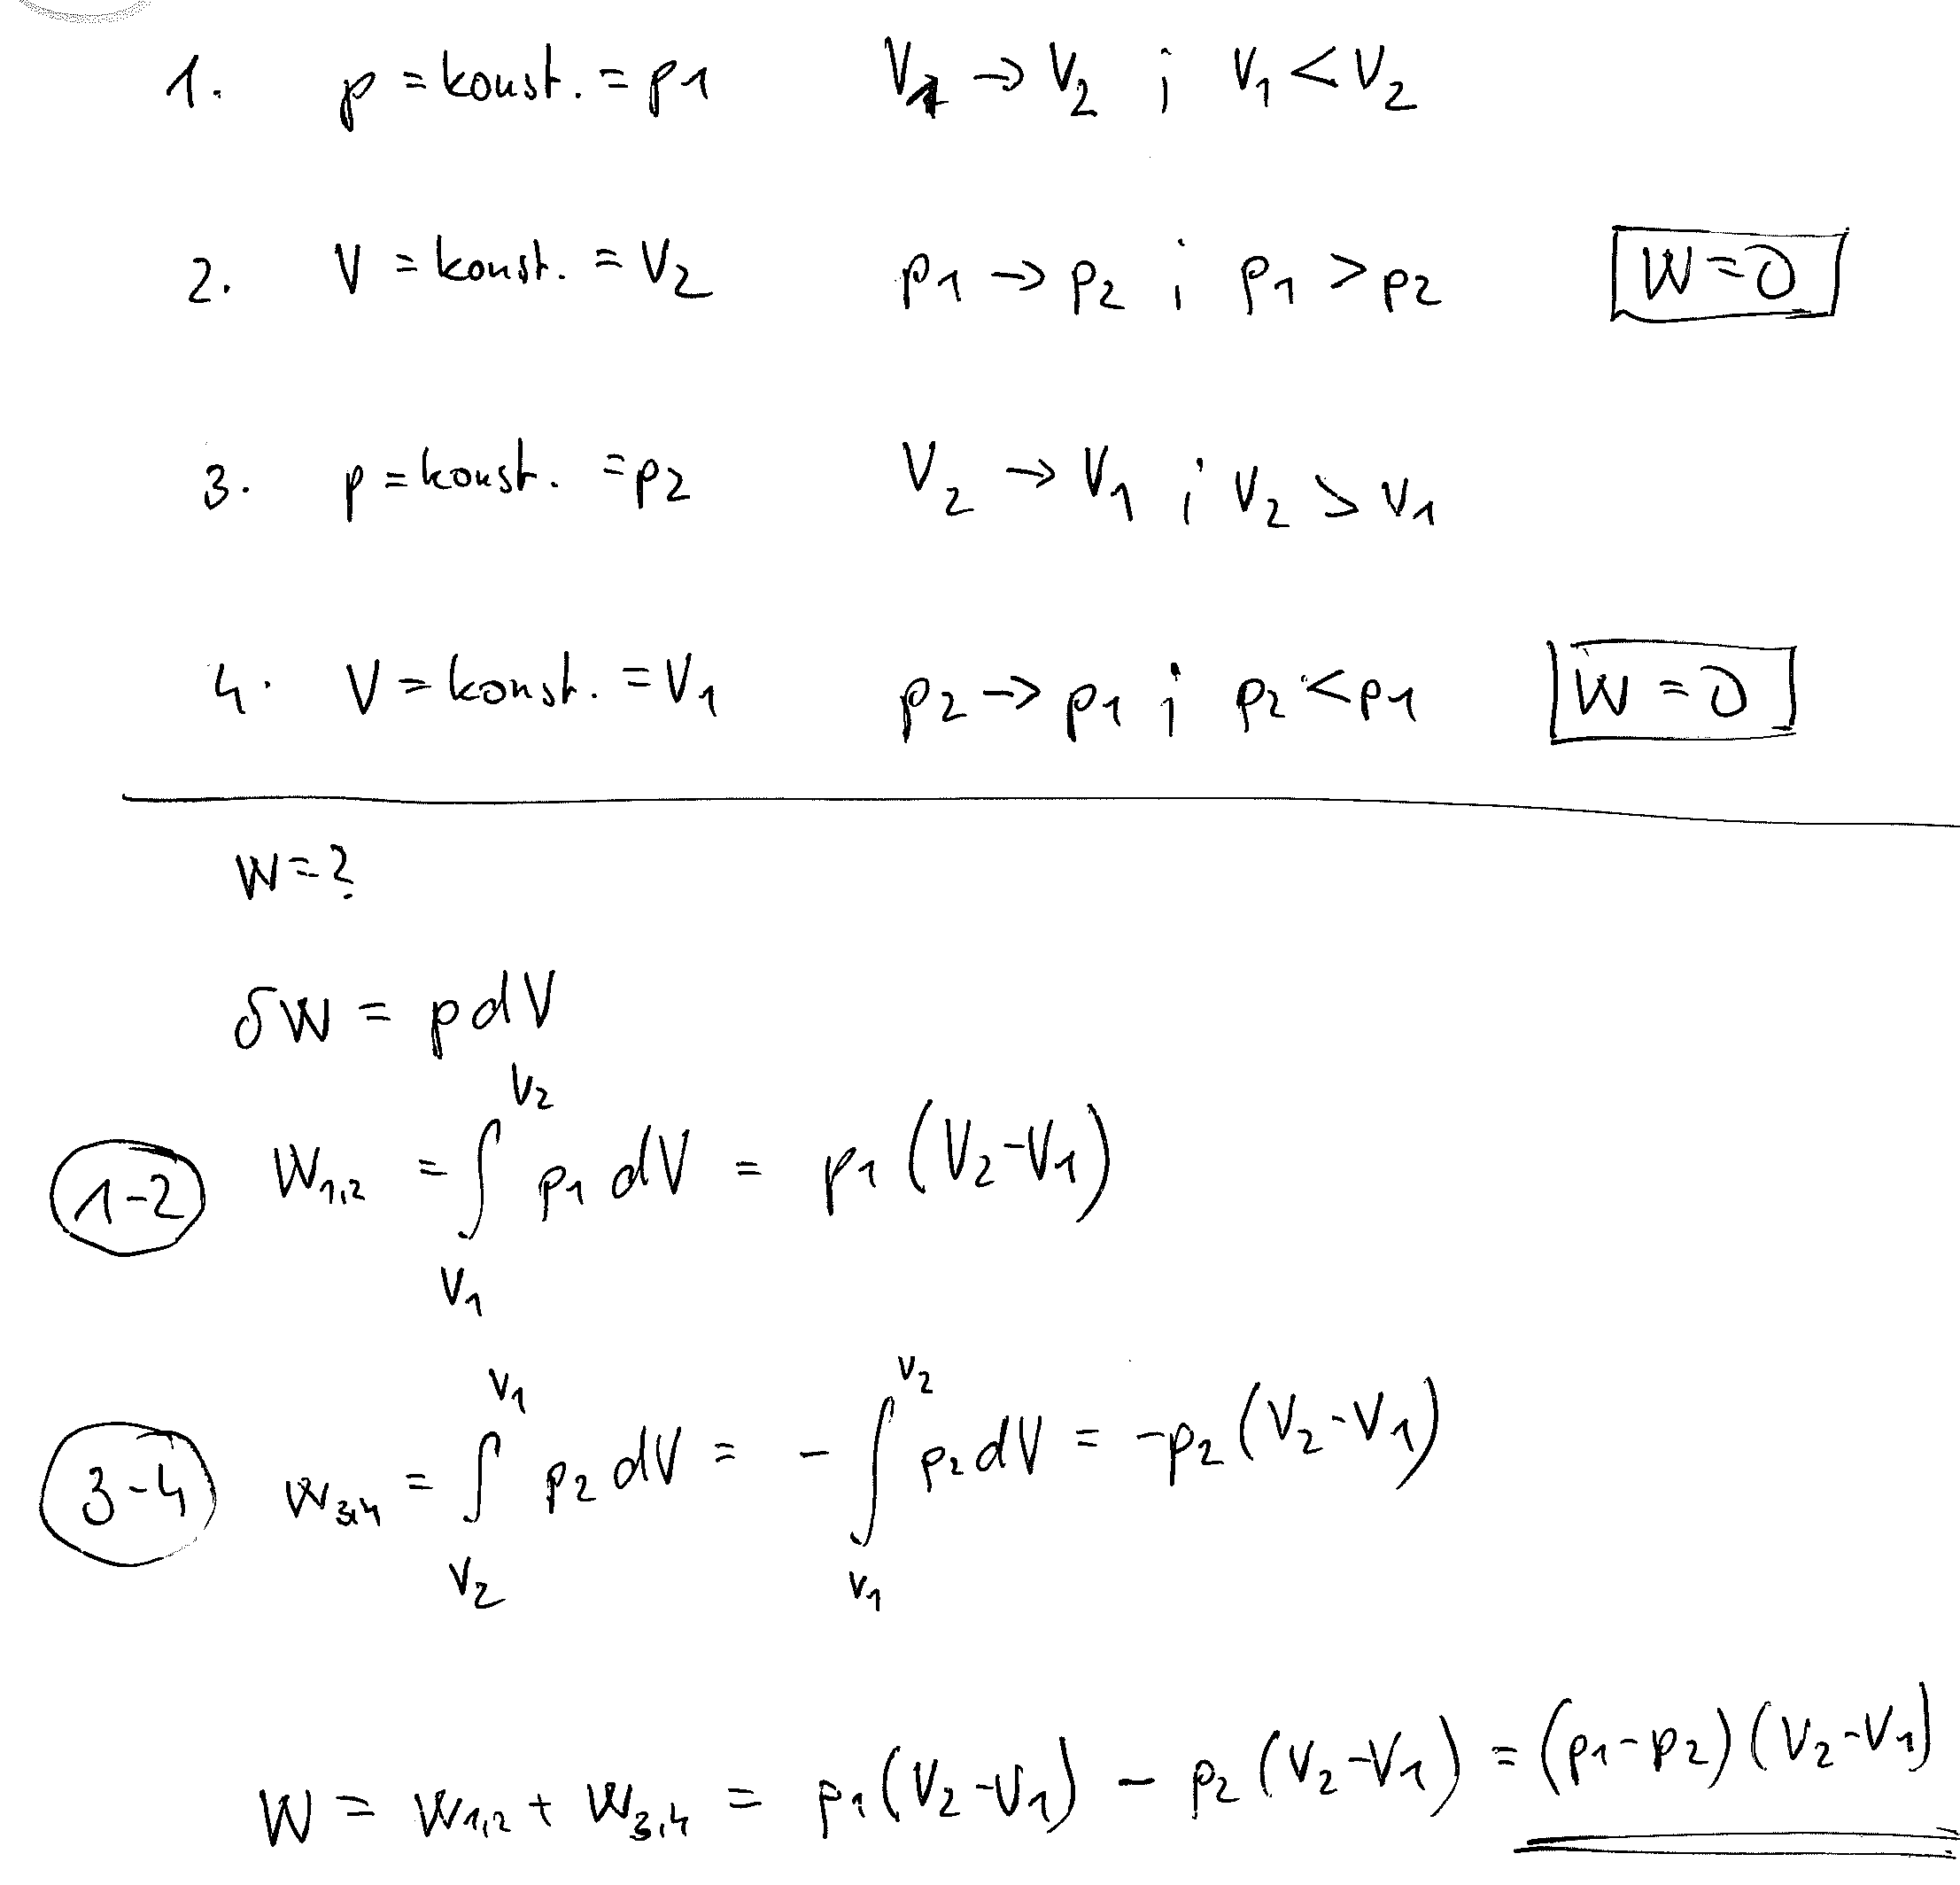 1. p = konst. = p1 V1 → V2 ; V1 < V2
2. V = konst. = V2 p1 → p2 ; p1 > p2 W = 0
3. p = konst. = p2 V2 → V1 ; V2 > V1
4. V = konst. = V1 p2 → p1 ; p2 < p1 W = 0
W = ?
δW = p dV
1-2 W1,2 = ∫_{V1}^{V2} p1 dV = p1 (V2 - V1)
3-4 W3,4 = ∫_{V2}^{V1} p2 dV = - ∫_{V1}^{V2} p2 dV = -p2 (V2 - V1)
W = W1,2 + W3,4 = p1 (V2 - V1) - p2 (V2 - V1) = (p1 - p2) (V2 - V1)